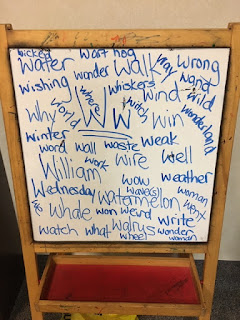 wicked wart hog
Water wonder Walk way Wrong
wishing whiskers wand
wind wild
Why world when windy wonderland
Ww win
winter
word wall waste weak
work wire Well
William
wow weather
Wednesday wavell woman
watermelon went
Whale won weird write
watch what walrus wonder
wheel woman